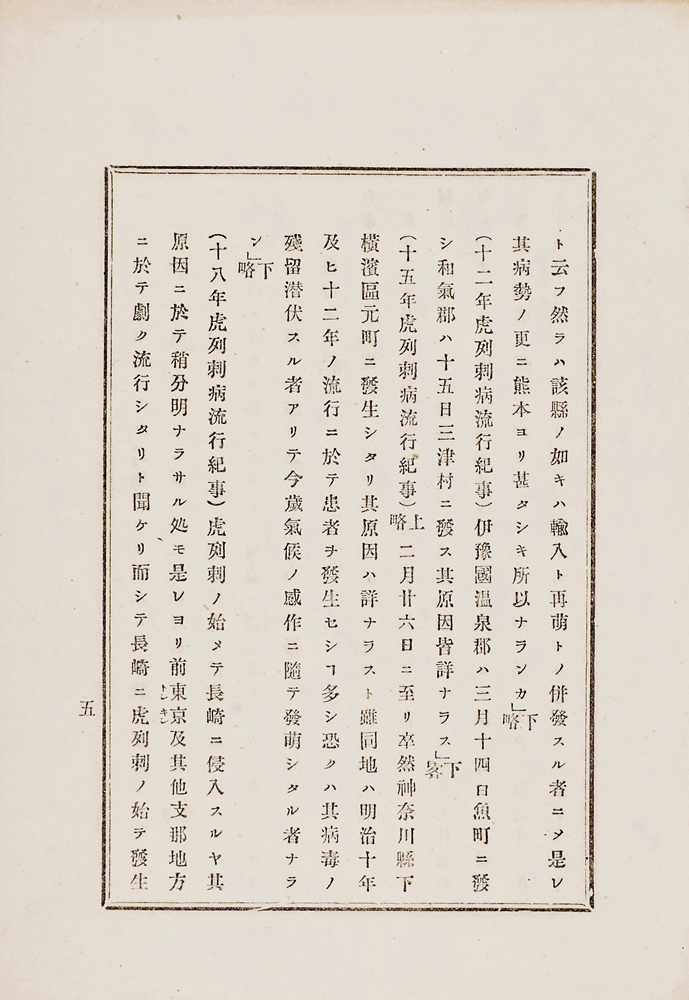 ト云フ然ラハ該縣ノ如キハ輸入ト再萌トノ併發スル者ニメ是レ
其病勢ノ更ニ熊本ヨリ甚タシキ所以ナランカ」下略
(十二年虎列刺病流行紀事)伊豫國温泉郡ハ三月十四日魚町ニ發
シ和氣郡ハ十五日三津村ニ發ス其原因皆詳ナラス」下畧
(十五年虎列刺病流行紀事)上略二月廿六日ニ至リ卒然神奈川縣下
横濱區元町ニ發生シタリ其原因ハ詳ナラスト雖同地ハ明治十年
及ヒ十二年ノ流行ニ於テ患者ヲ發生セシヿ多シ恐クハ其病毒ノ
殘留潜伏スル者アリテ今歳氣候ノ感作ニ隨テ發萌シタル者ナラ
ン」下略
(十八年虎列刺病流行紀事)虎列刺ノ始メテ長崎ニ侵入スルヤ其
原因ニ於テ稍分明ナラサル処モ是レヨリ前東京トンキン及其他支那地方
ニ於テ劇ク流行シタリト聞ケリ而シテ長崎ニ虎列刺ノ始テ發生
五